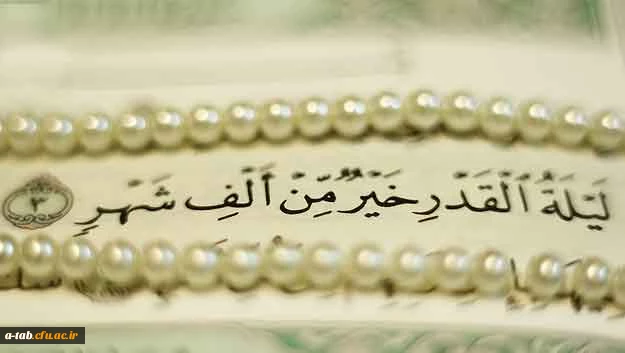 لَيْلَةُ الْقَدْرِ خَيْرٌ مِّنْ أَلْفِ شَهْرٍ ٣
a-tab.cfu.ac.ir